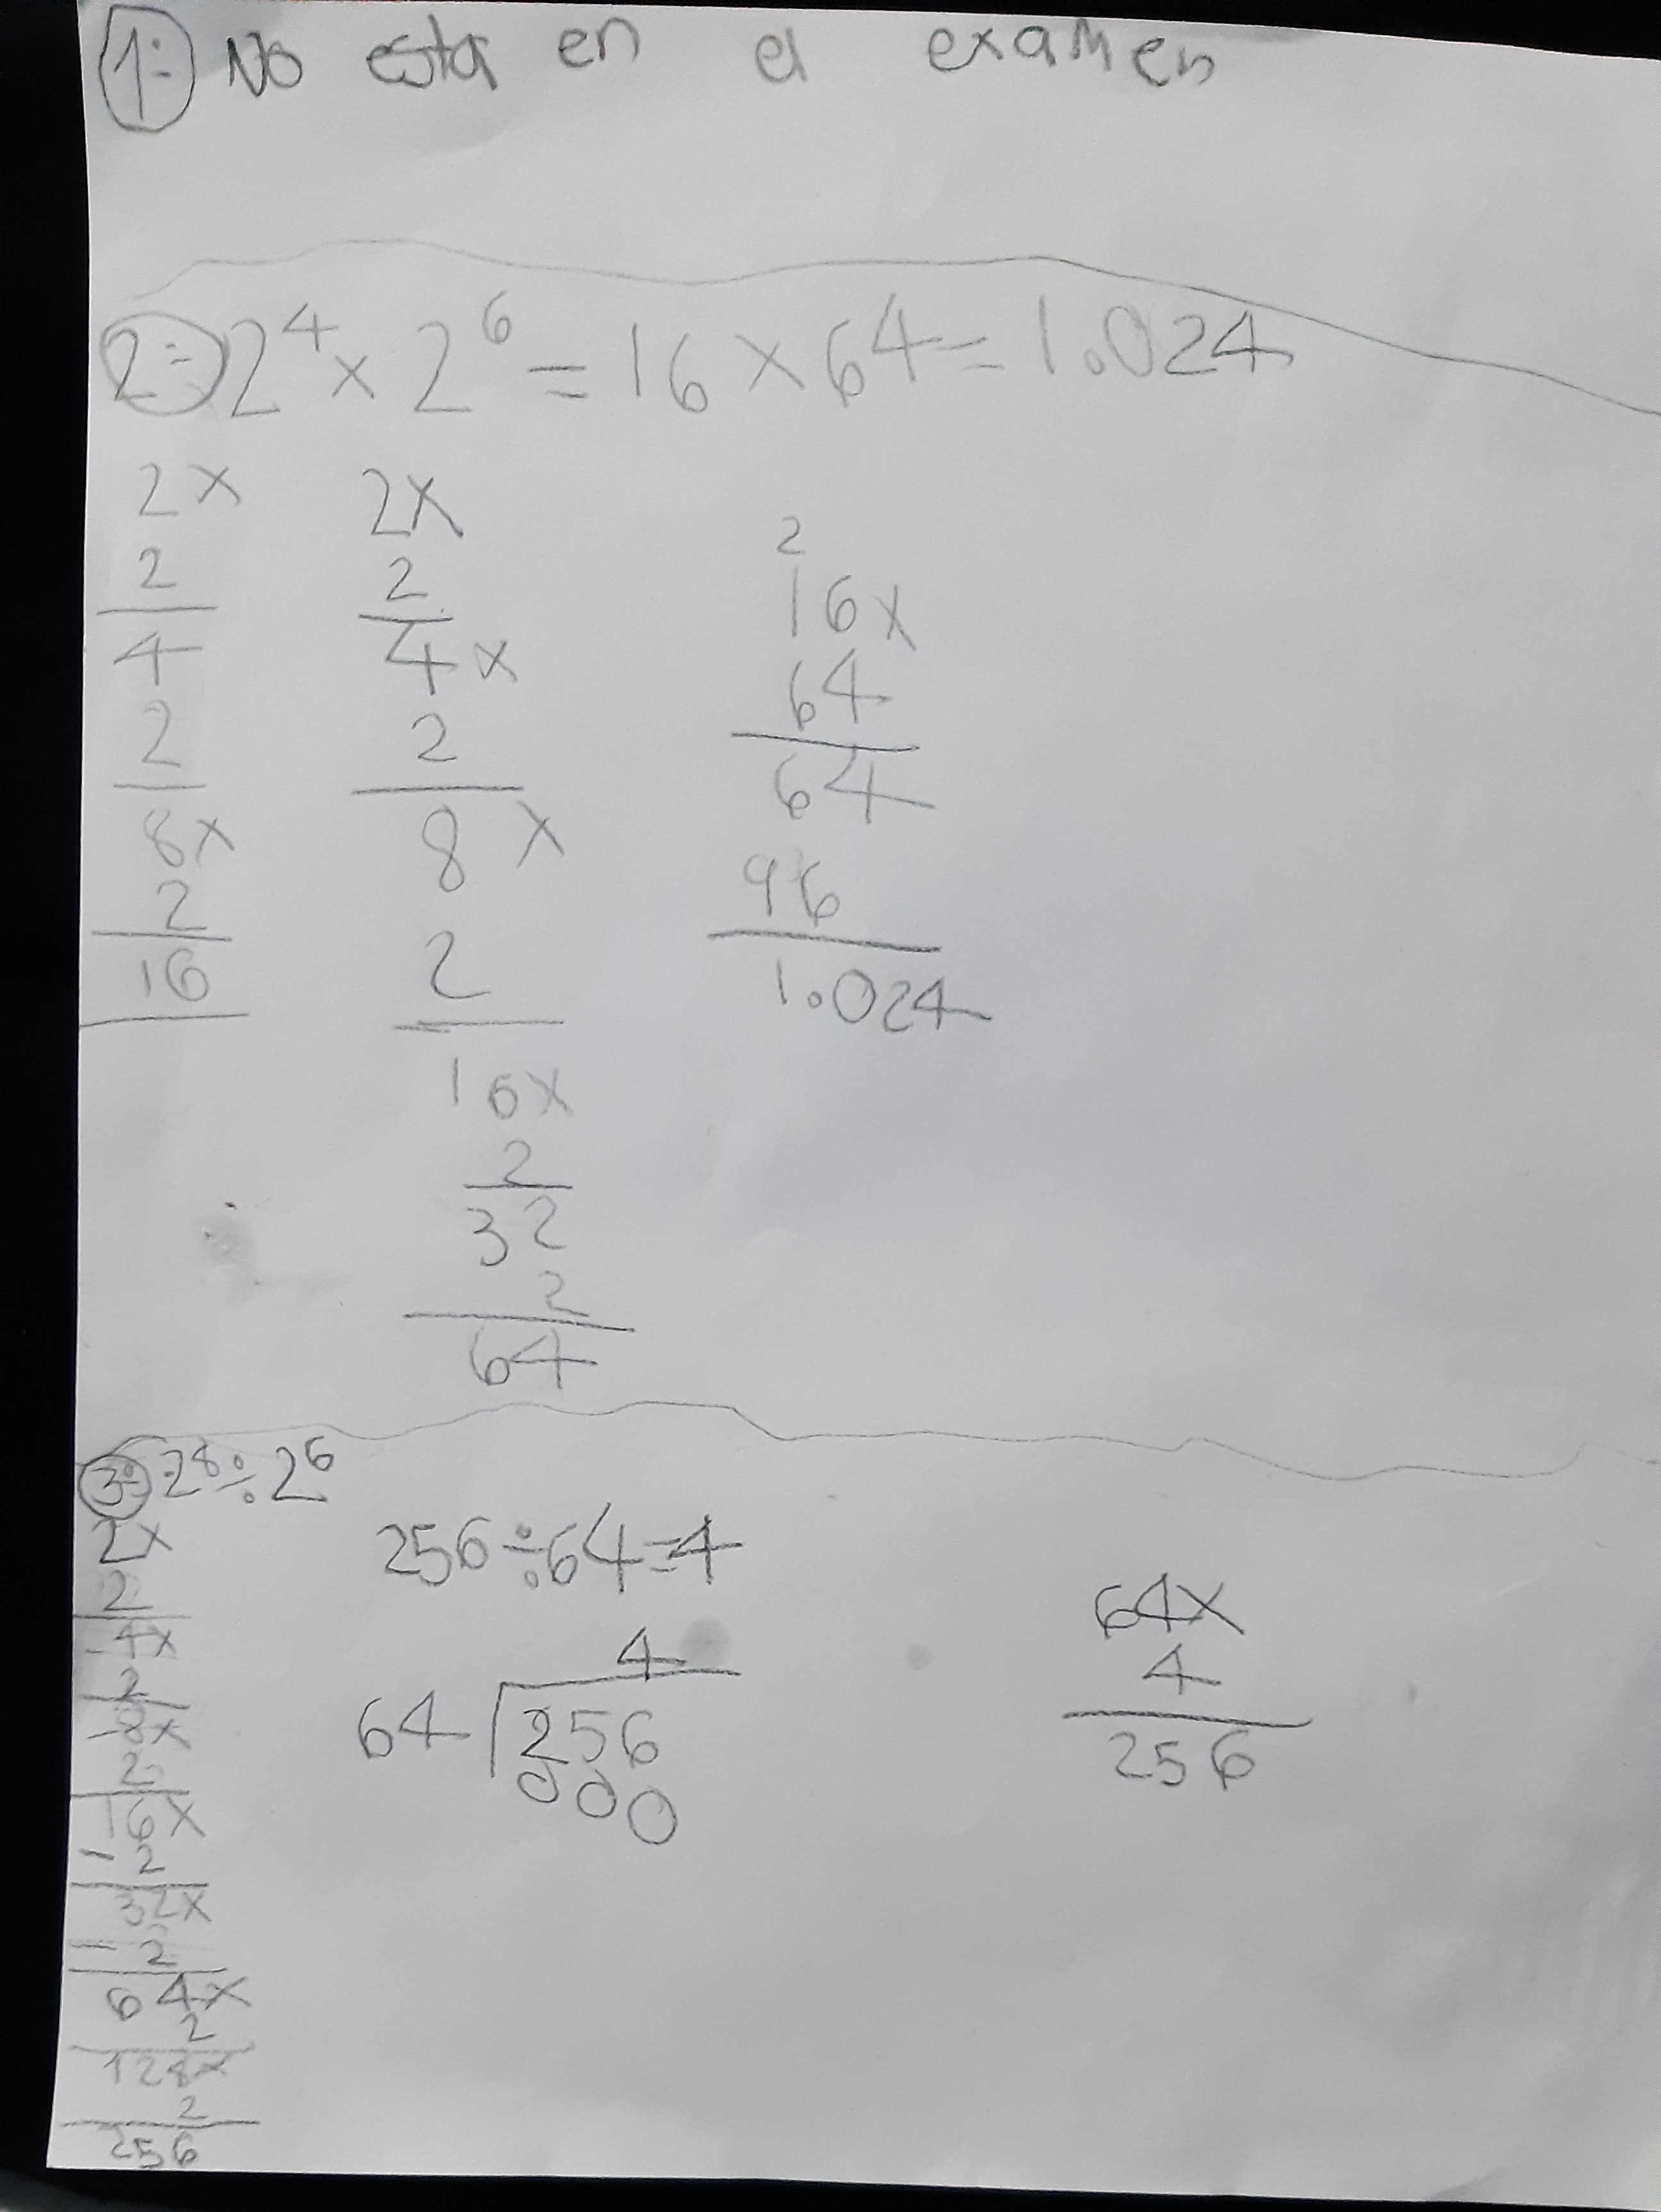 1: No esta en el examen
2: 2⁴ x 2⁶ = 16 x 64 = 1.024
2x
2
4
2
8x
2
16
2x
2
4x
2
8x
2
16x
2
32
2
64
2
16x
64
64
96
1.024
3: 2⁸ ÷ 2⁶
2x
2
4x
2
8x
2
16x
2
32x
2
64x
2
128x
2
256
256 ÷ 64 = 4
4
64 256
000
64x
4
256